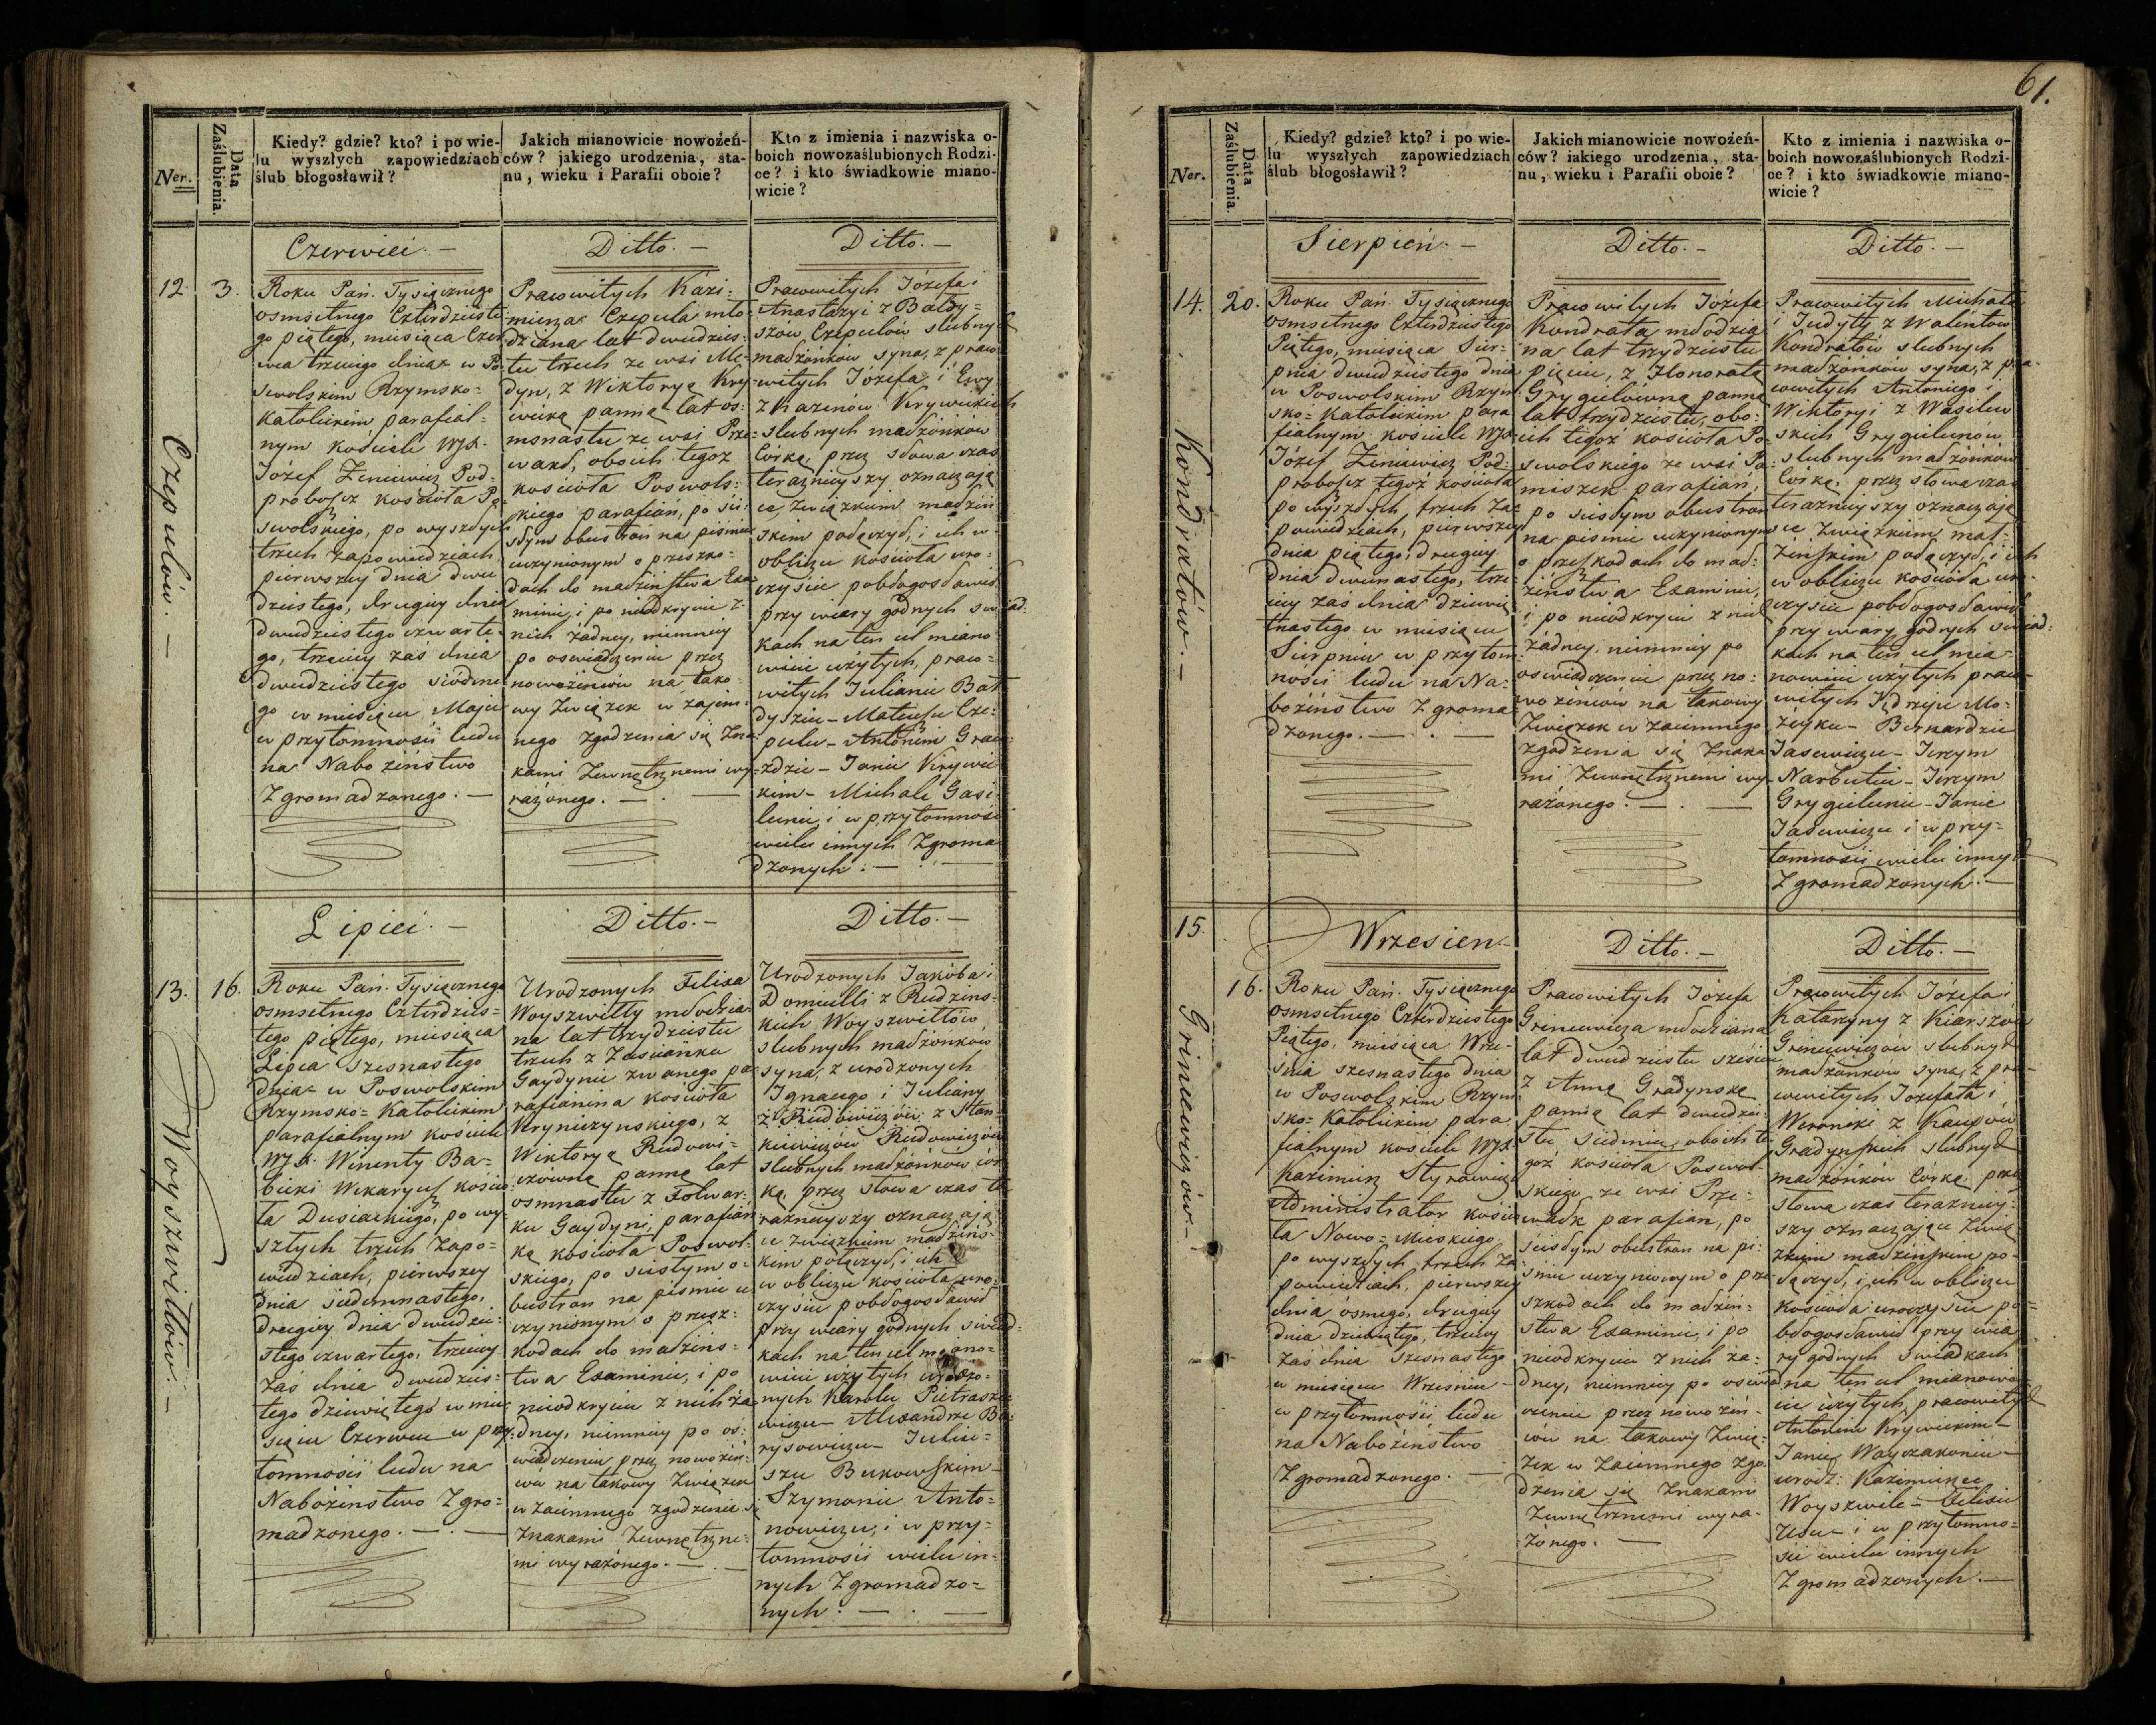 61.
Ner.
Data Zaślubienia.
Kiedy? gdzie? kto? i po wie-
lu wyszłych zapowiedziach
ślub błogosławił?
Jakich mianowicie nowożeń-
ców? jakiego urodzenia, sta-
nu, wieku i Parafii oboie?
Kto z imienia i nazwiska o-
boich nowozaślubionych Rodzi-
ce? i kto świadkowie miano-
wicie?
Czerwiec. —
Ditto. —
Ditto. —
12.
3.
Czepulow. —
Roku Pań. Tysiącznego
osmsetnego Czterdzieste-
go piątego, miesiąca Czer
wca trzeciego dnia w Po-
swolskim Rzymsko=
Katolickim parafial-
nym kościele WJX.
Józef Zeniewicz Pod-
proboszcz kościoła Po
swolskiego, po wyszłych
trzech zapowiedziach
pierwszey dnia dwu
dziestego, drugiey dnia
dwudziestego czwarte-
go, trzeciey zaś dnia
dwudziestego siódme
go w miesiącu Maju
w przytomności ludu
na Nabożeństwo
Zgromadzonego. —
Pracowitych Kazi-
mierza Czepula mło-
dziana lat dwudzies-
tu trzech ze wsi Me-
dyn, z Wiktoryą Kry
wicką panną lat os-
mnastu ze wsi Prze-
wakś, oboich tegoż
kościoła Poswols-
kiego parafian, po ści-
słym obustron na piśmie
uczynionym o przeszko-
dach do małżeństwa Exa
minie, i po nieodkryciu z
nich żadney, niemniey
po oswiadczeniu przez
nowożeńców na tako-
wy Związek w zajem-
nego zgodzenia się Zna-
kami Zewnętrznemi wy-
rażonego. — . —
Pracowitych Józefa i
Anastazyi z Bałdy=
szow Czepulow slubnych
małżonkow syna, z praco-
witych Józefa i Ewy
z Kazenow Krywickich
slubnych małżonkow
Córką, przez słowa czas
teraznieyszy oznaczają
ce, związkiem małżeń
skim połączył, i ich w
obliczu kościoła uro-
czyście pobłogosławił
przy wiary godnych świad-
kach na ten cel miano-
wicie użytych, praco-
witych Julianie Bał
dyszu — Mateuszu Cze-
pulu — Antonim Gra
zdzie — Janie Krywic
kim — Michale Gasi
lunie, i w przytomności
wielu innych Zgroma
dzonych. —
Lipiec. —
Ditto. —
Ditto. —
13.
16.
Woyszwiłłow. —
Roku Pań. Tysiącznego
osmsetnego Czterdzies=
tego piątego, miesiąca
Lipca szesnastego
dnia w Poswolskim
Rzymsko= Katolickim
parafialnym kościele
WJX. Wincenty Ba=
bicki Wikaryusz kościo
ła Dusiackiego, po wy-
szłych trzech Zapo=
wiedziach, pierwszey
dnia siedemnastego,
drugiey dnia dwudzie-
stego czwartego, trzeciey
zaś dnia dwudzies-
tego dziewiętego w mie
siącu Czerwcu w przy-
tomności ludu na
Nabożeństwo Zgro=
madzonego. — . —
Urodzonych Felixa
Woyszwiłły młodzia
na lat trzydziestu
trzech z Zaścianku
Gaydynie zwanego pa
rafianina kościoła
Kryniczynskiego, z
Wiktoryą Rudowi=
czówną panną lat
osmnastu z Folwar-
ku Gaydyni, parafian-
ką kościoła Poswol-
skiego, po scisłym o-
bustron na piśmie u-
czynionym o przesz-
kodach do małżeńs-
twa Examinie, i po
nieodkryciu z nich ża
dney, niemniey po os-
wiadczeniu przez nowożeń-
ców na takowy Związek
w zaiemnego zgodzenia się
Znakami Zewnętrzne-
mi wyrażonego. — . —
Urodzonych Jakóba i
Domicelli z Rudzins-
kich Woyszwiłłow
slubnych małżonkow
syna, z urodzonych
Ignacego i Julianny
z Stan-
kiewiczów Rudowiczów
slubnych małżonkow cór
ką, przez słowa czas te
raznieyszy oznaczają
ce Związkiem małżeńs-
kim połączył, i ich
w obliczu kościoła uro-
czyście pobłogosławił
przy wiary godnych swiad-
kach na ten cel miano=
wicie użytych urodzo-
nych Karolu Pietrasze
wiczu — Alexandrze Bo
rysowiczu — Juliu-
szu Bukowskim —
Szymonie Anto-
nowiczu, i w przy-
tomności wielu in-
nych Zgromadzo=
nych. — . —
Ner.
Data Zaślubienia.
Kiedy? gdzie? kto? i po wie-
lu wyszłych zapowiedziach
ślub błogosławił?
Jakich mianowicie nowożeń-
ców? iakiego urodzenia, sta-
nu, wieku i Parafii oboie?
Kto z imienia i nazwiska o-
boich nowozaślubionych Rodzi-
ce? i kto świadkowie miano-
wicie?
Sierpień. —
Ditto. —
Ditto. —
14.
20.
Kondratów. —
Roku Pań. Tysiącznego
osmsetnego Czterdziestego
Piątego, miesiąca Sier-
pnia dwudziestego dnia
w Poswolskim Rzym
sko= Katolickim para
fialnym kościele WJX.
Józef Zeniewicz Pod-
proboszcz tegoż kościoła
po wyszłych trzech Za-
powiedziach, pierwszey
dnia piątego, drugiey
dnia dwunastego, trze-
ciey zaś dnia dziewię
tnastego w miesiącu
Sierpniu w przytom-
ności ludu na Na-
bożeństwo Zgroma-
dzonego. — . —
Pracowitych Józefa
Kondrata młodzia
na lat trzydziestu
pięciu, z Honoratą
Grygielówną panną
lat trzydziestu, obo-
ich tegoż kościoła Po-
swolskiego ze wsi Pa-
miszek parafian,
po scisłym obustron
na piśmie uczynionym
o przeszkodach do mał-
żeństwa Examinie,
i po nieodkryciu z nich
żadney, niemniey po
oswiadczeniu przez no-
wożeńców na takowy
Związek w zaiemnego
zgodzenia się Znaka
mi Zewnętrznemi wy-
rażonego. — . —
Pracowitych Michała
i Judyty z Walentow
Kondratów slubnych
małżonków syna, z pra-
cowitych Antoniego i
Wiktoryi z Wasilew
skich Grygielunów
slubnych małżonków
Córką, przez słowa czas
teraznieyszy oznaczają
ce Związkiem mał-
żeńskim połączył, i ich
w obliczu kościoła uro-
czyście pobłogosławił
przy wiary godnych swiad-
kach na ten cel mia-
nowicie użytych praco-
witych Jędrzeju Mo-
żeyku — Bernardzie
Jasewiczu — Jerzym
Narbutie — Jerzym
Grygielunie — Janie
Jasewiczu i w przy=
tomności wielu innych
Zgromadzonych. —
15.
Wrzesien. —
Ditto. —
Ditto. —
16.
Grinewiczów. —
Roku Pań. Tysiącznego
osmsetnego Czterdziestego
Piątego, miesiąca Wrze-
śnia szesnastego dnia
w Poswolskim Rzym
sko= Katolickim para
fialnym kościele WJX.
Kazimierz Styrawicz
Administrator kościo
ła Nowo= Mieskiego
po wyszłych trzech Za
powiedziach, pierwszey
dnia ósmego, drugiey
dnia dziewiątego, trzeciey
zaś dnia szesnastego
w miesiącu Wrześniu —
w przytomności ludu
na Nabożeństwo
Zgromadzonego. —
Pracowitych Józefa
Grinewicza młodziana
lat dwudziestu sześciu
z Anną Gradynską
panną lat dwudzie-
stu siedmiu, oboich te
goż kościoła Poswol-
skiego ze wsi Prze-
wakś parafian, po
scisłym obustron na pi-
śmie uczynionym o prze
szkodach do małżeń-
stwa Examinie, i po
nieodkryciu z nich ża-
dney, niemniey po oswiad
czeniu przez nowożeń-
ców na takowy Zwią-
zek w zaiemnego zgo-
dzenia się Znakami
Zewnętrznemi wyra-
żonego. —
Pracowitych Józefa i
Katarzyny z Kiarszow
Grinewiczów slubnych
małżonkow syna, z pra-
cowitych Jozefata i
Weroniki z Kaupow
Gradynskich slubnych
małżonków Córką, przez
słowa czas terazniey-
szy oznaczające Zwią-
zkiem małżeńskim po-
łączył, i ich w obliczu
kościoła uroczyście po-
błogosławił przy wia
ry godnych swiadkach
na ten cel mianowi
cie użytych, pracowitych
Antonim Krywickim —
Janie Woyczakonie —
urodz: Kazimierzu
Woyszwile — Felixie
i w przytomno=
ści wielu innych
Zgromadzonych. —